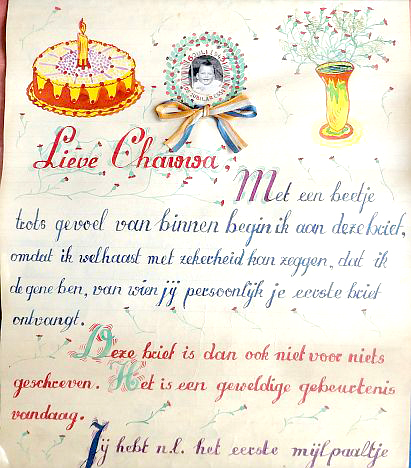 Lieve Chawwa,
Met een beetje
trots gevoel van binnen begin ik aan deze brief,
omdat ik welhaast met zekerheid kan zeggen, dat ik
degene ben, van wien jij persoonlijk je eerste brief
ontvangt.
Deze brief is dan ook niet voor niets
geschreven. Het is een geweldige gebeurtenis
vandaag.
Jij hebt n.l. het eerste mijlpaaltje